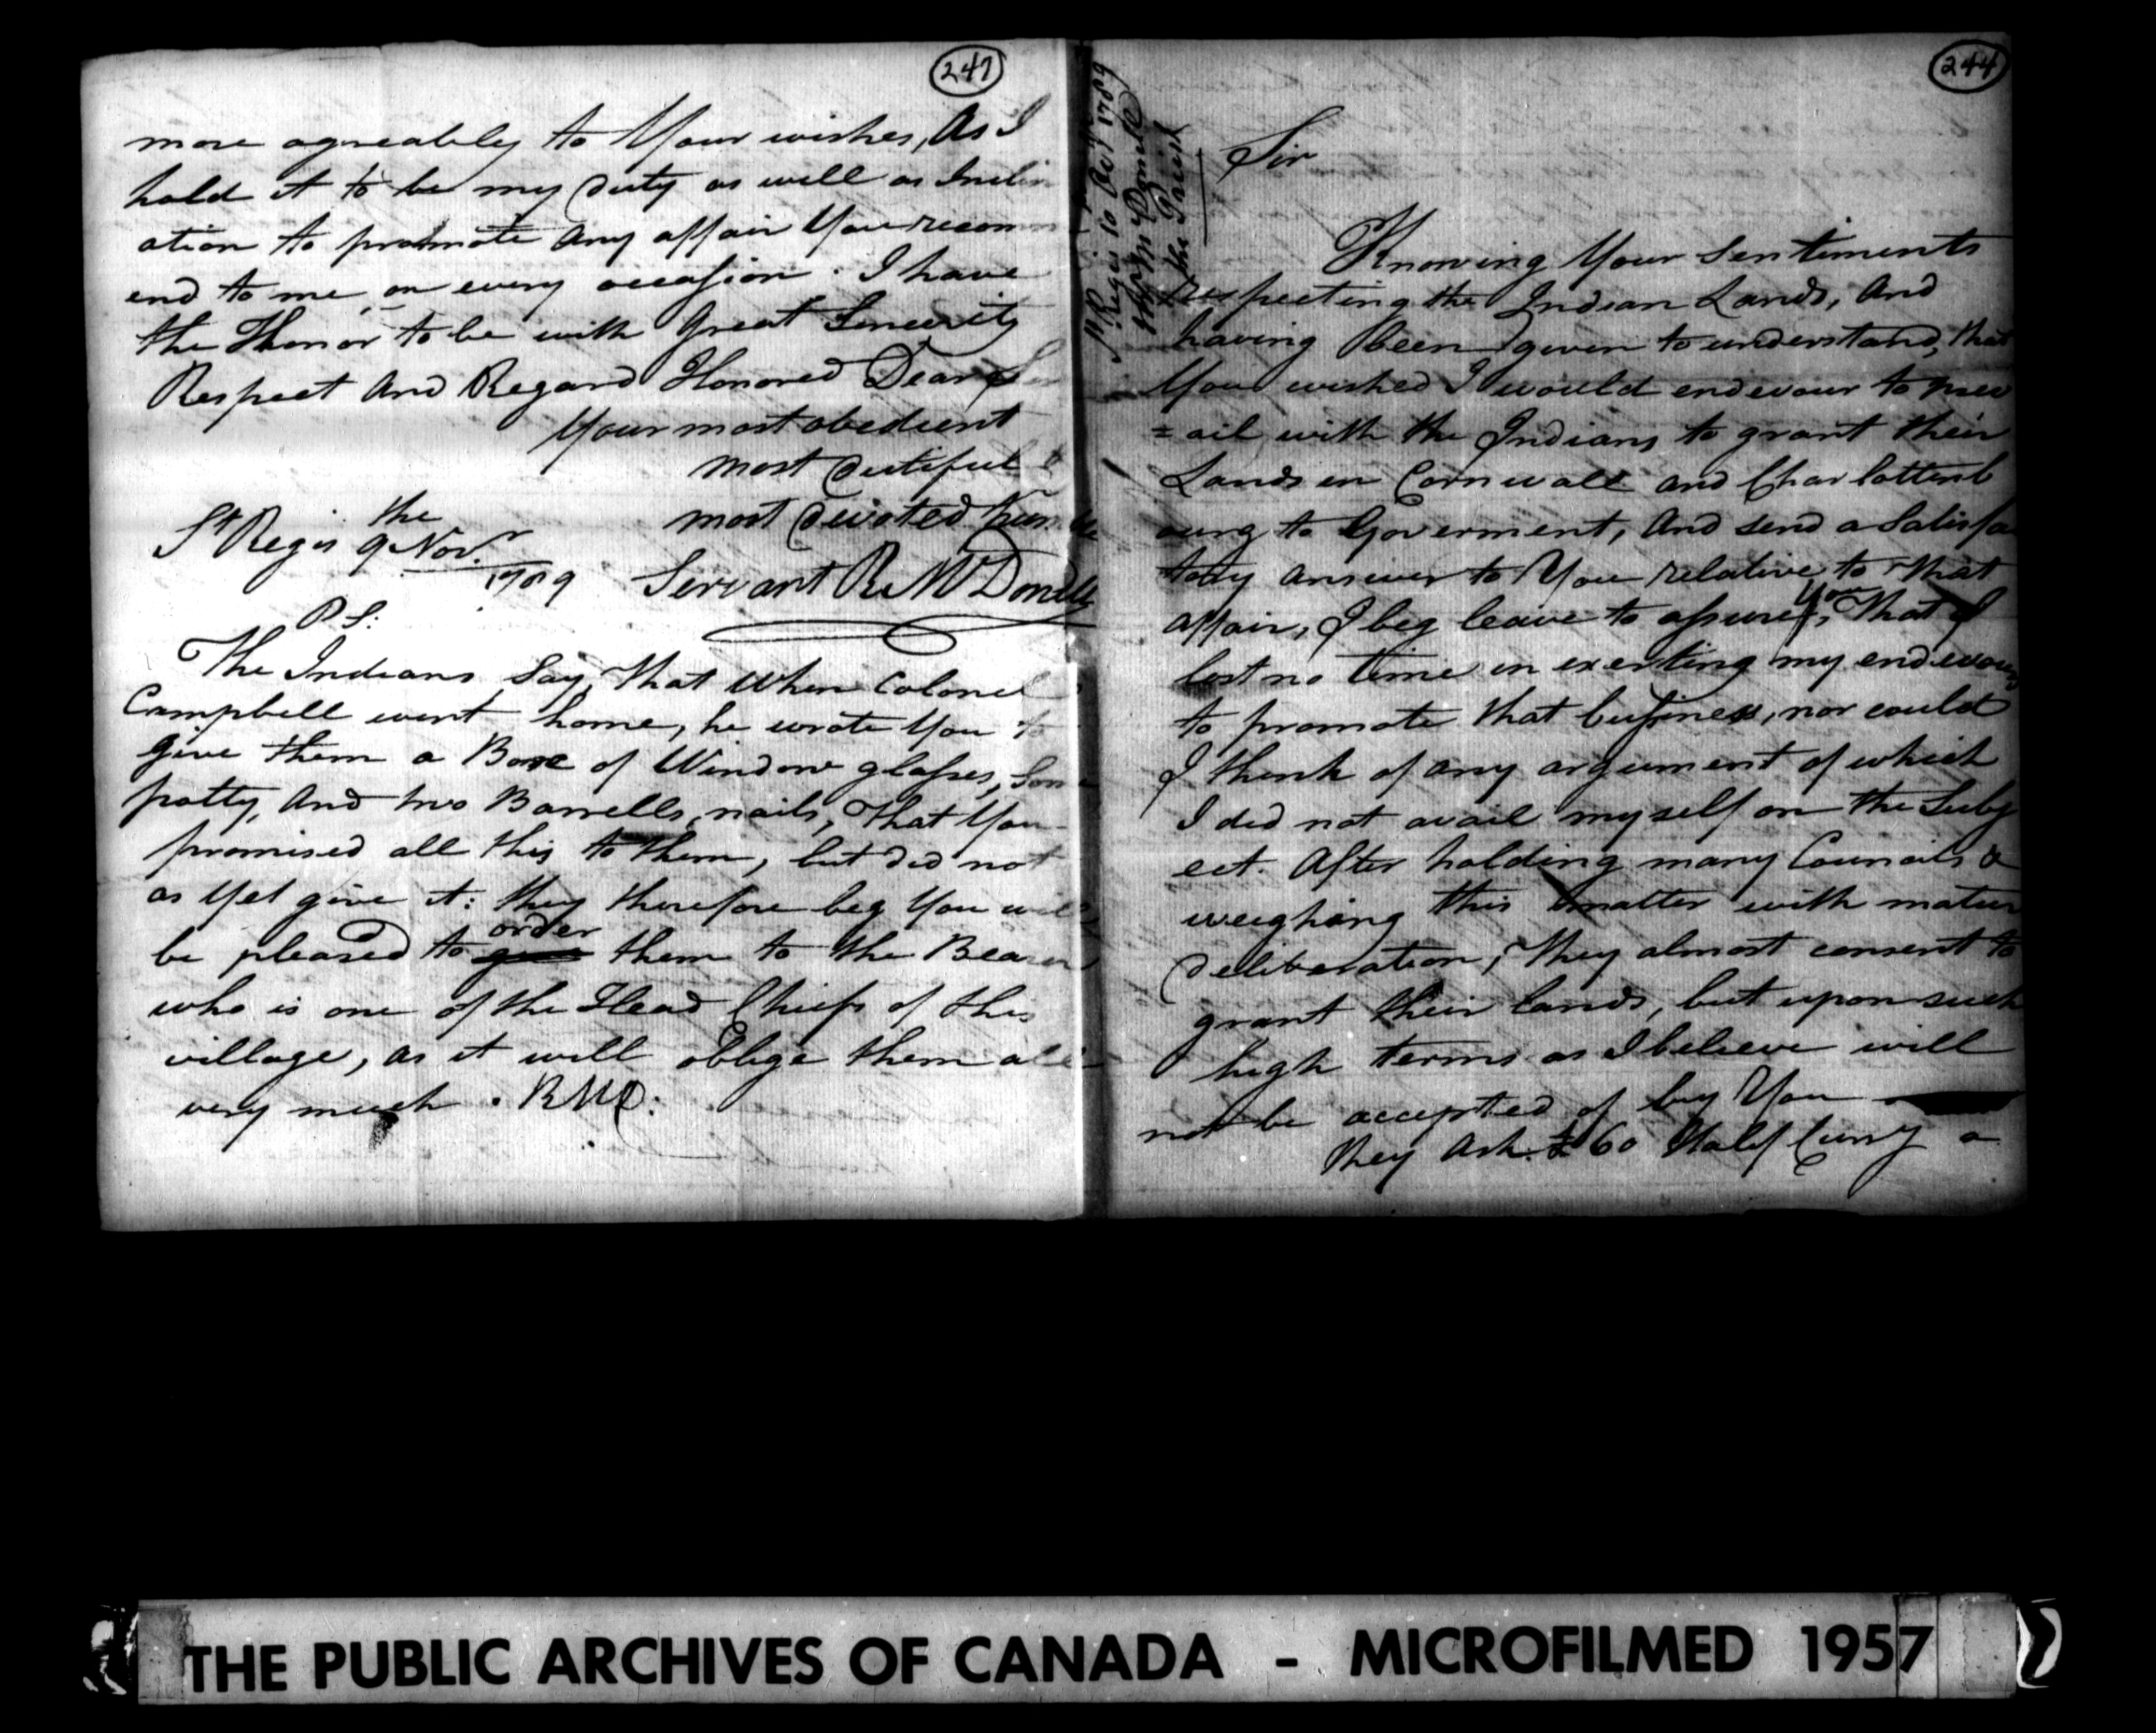 247
more agreeably to Your wishes, As I
hold it to be my duty as well as Inclin
ation to promote any affair You recom
end to me on every occasion. I have
the Honor to be with Great Sincerity
Respect And Regard Honored Dear Sir
Your most obedient
most dutiful &
most devoted humble
St Regis the
9 Novr
1789 Servant R McDonell
P S:
The Indians Say, that when Colonel
Campbell went home, he wrote You to
give them a Boxe of Window glasses, Some
potty, And two Barrells nails, That You
promised all this to them, but did not
as Yet give it: they therefore beg You will
be pleased to order them to the Bearer
who is one of the Head Chiefs of this
village, as it will oblige them all
very much. RMD:
244
St Regis 10 1789
McDonell
the Priest
Sir
Knowing Your Sentiments
respecting the Indian Lands, And
having been given to understand, that
You wished I would endevour to prev
=ail with the Indians to grant their
Lands in Cornwall and Charlottenb
ourg to Goverment, And send a Satisfac
tory Answer to You relative to that
affair, I beg leave to assure You, That I
lost no time in exerting my endevours
to promote that business, nor could
I think of any argument of which
I did not avail myself on the Subj
ect. After holding many Councils &
weighing this matter with mature
deliberation, They almost consent to
grant their lands, but upon such
high terms as I believe will
not be accepted of by You
they Ask £60 Half Curry a
THE PUBLIC ARCHIVES OF CANADA - MICROFILMED 1957